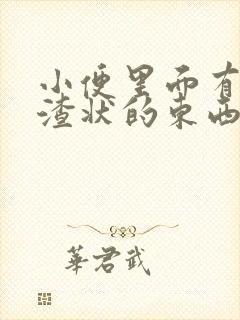 小便里面有
渣状的东西
華君武